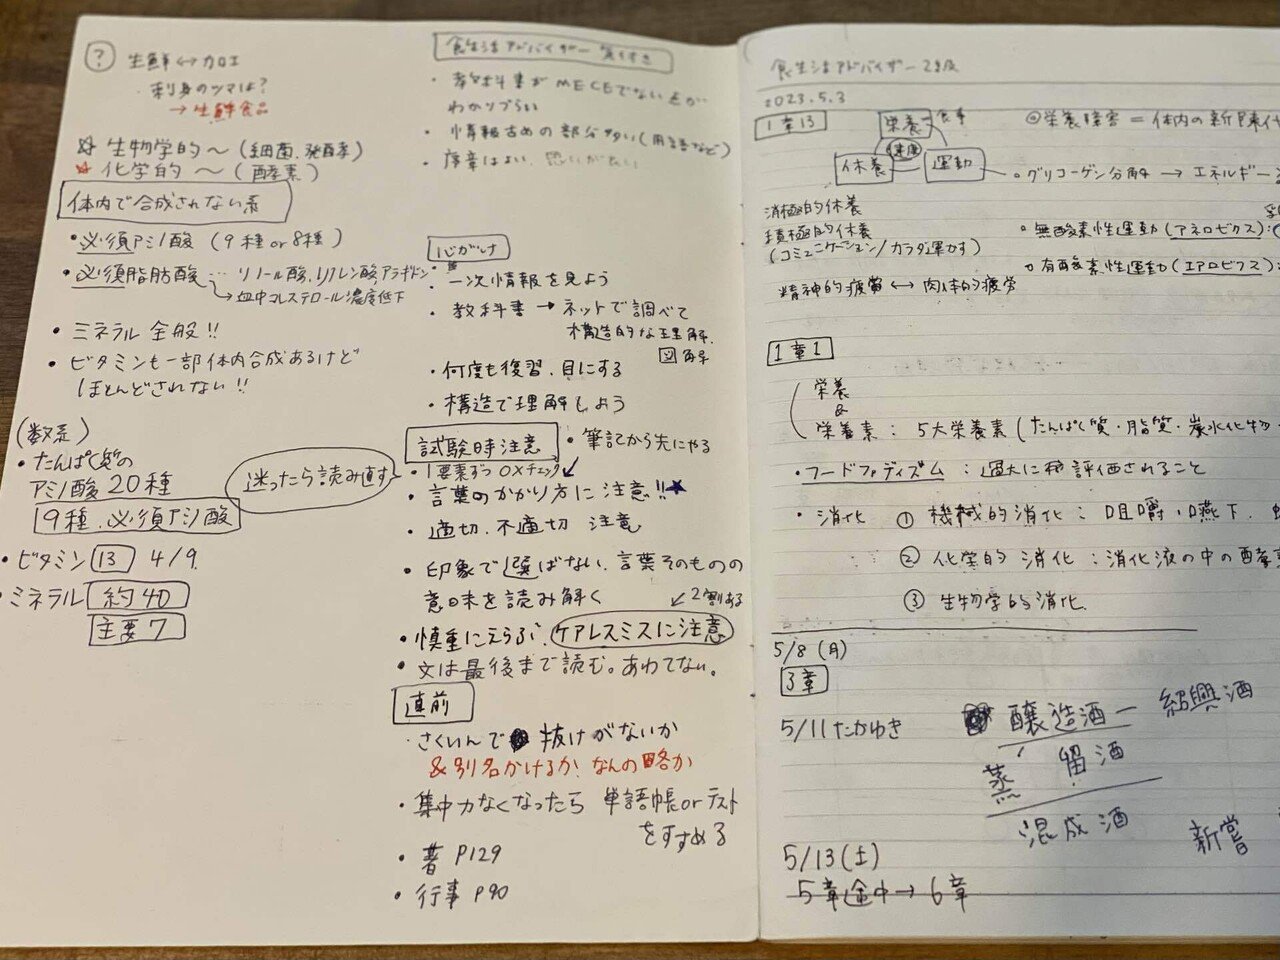 ? 生鮮↔カロエ
刺身のツマは?
→生鮮食品
☆ 生物学的〜(細菌.発酵)
☆ 化学的〜(酵素)
体内で合成されない系
・必須アミノ酸(9種or8種)
・必須脂肪酸…リノール酸、リノレン酸、アラキドン
→血中コレステロール濃度低下
・ミネラル全般!!
・ビタミンも一部体内合成あるけど
ほとんどされない!!
(数系)
・たんぱく質の
アミノ酸20種
9種.必須アミノ酸
・ビタミン 13 4/9
・ミネラル 約40
主要7
食生活アドバイザー
・教科書がMECEでない点が
わかりづらい
・情報古めの部分多い(用語など)
・序章はよい
心がけ
・一次情報を見よう
・教科書→ネットで調べて
構造的な理解.
図解
・何度も復習.目にする
・構造で理解しよう
試験時注意
・筆記から先にやる
・1要素ずつOXチェック
迷ったら読み直す
・言葉のかかり方に注意!!★
・適切.不適切 注意
・印象で選ばない.言葉そのものの
意味を読み解く
↙2割ある
・慎重にえらぶ.ケアレスミスに注意
・文は最後まで読む。あわてない。
直前
・さくいんで 抜けがないか
&別名かけるか.なんの略か
・集中力なくなったら 単語帳orテスト
をすすめる
・箸 P129
・行事 P90
食生活アドバイザー2級
2023.5.3
1章13
栄養 食事
健康
休養 運動
◎栄養障害=体内の新陳代
・グリコーゲン分解→エネルギー
消極的休養
積極的休養
(コミュニケーション/カラダ運かす)
・無酸素性運動(アネロビクス):
・有酸素性運動(エアロビクス):
精神的疲労↔肉体的疲労
1章1
栄養
&
栄養素:5大栄養素(たんぱく質・脂質・炭水化物・
・フードファディズム:過大に評価されること
・消化 ①機械的消化:咀嚼、嚥下.
②化学的消化:消化液の中の酵素
③生物学的消化.
5/8(月)
3章
5/11たかゆき
醸造酒ー紹興酒
蒸留酒
混成酒
新嘗
5/13(土)
5章途中→6章